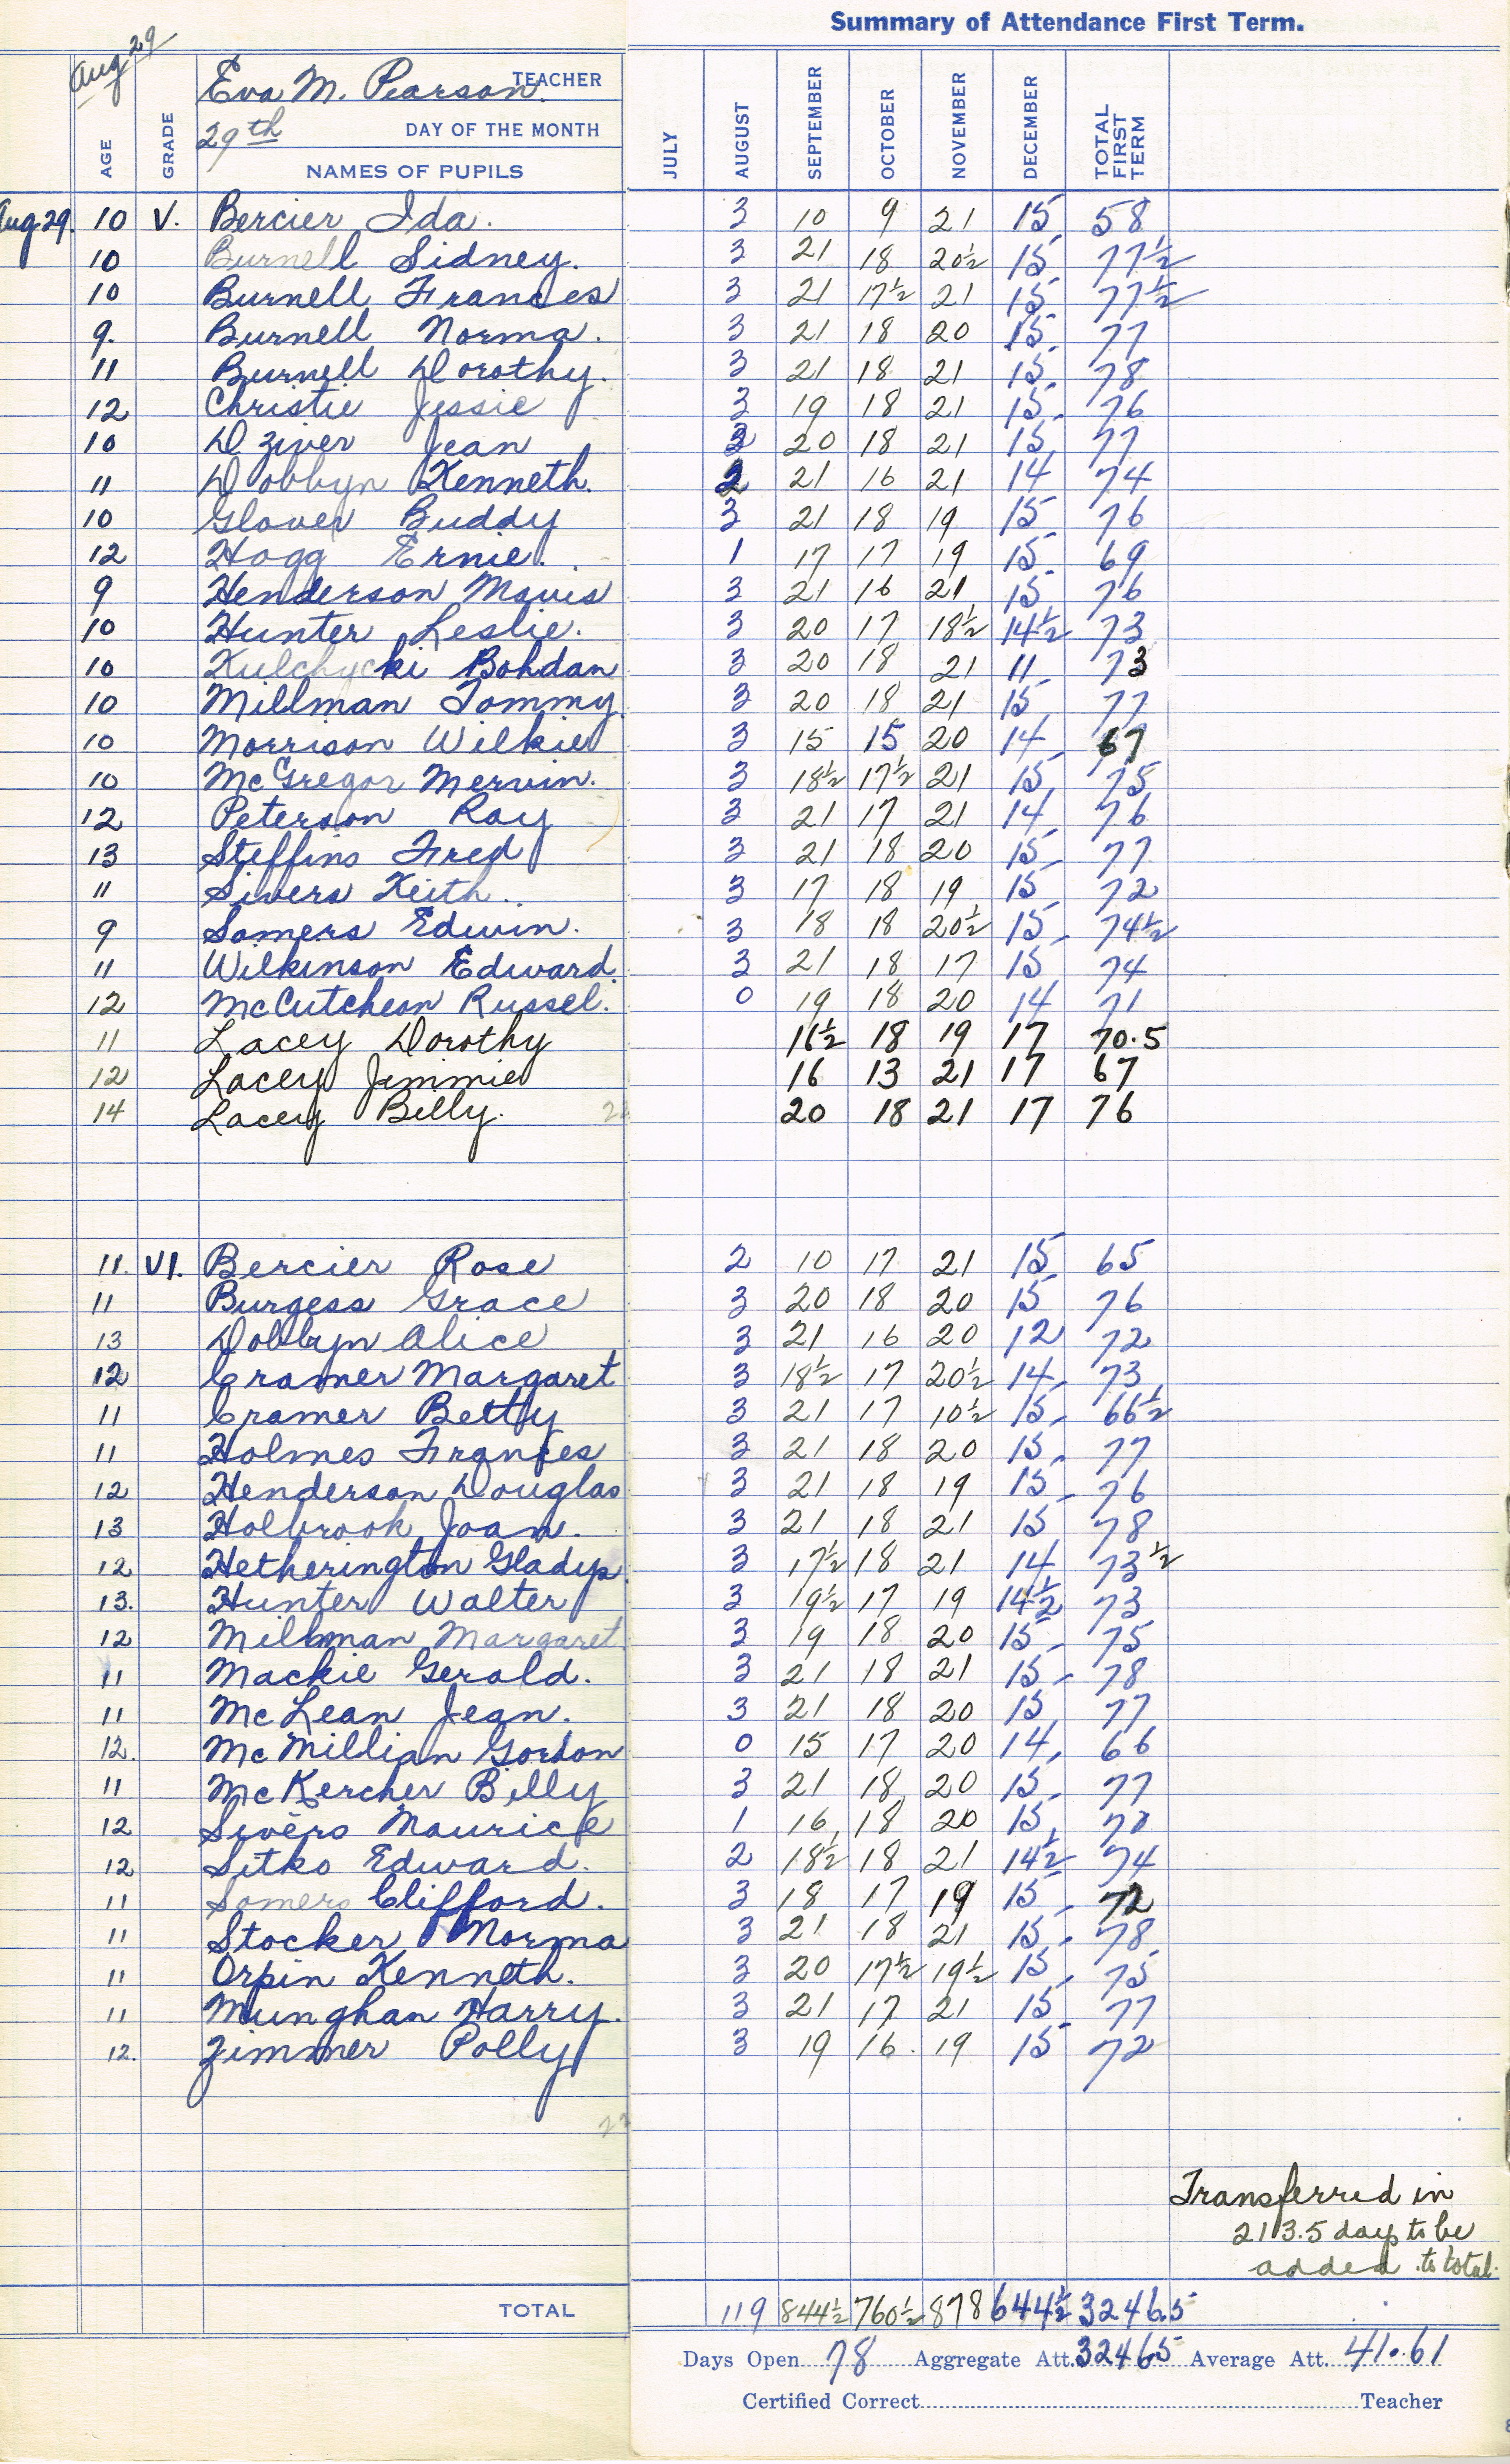 Summary of Attendance First Term.
Aug 29
Eva M. Pearson. TEACHER
29th DAY OF THE MONTH
AGE GRADE NAMES OF PUPILS JULY AUGUST SEPTEMBER OCTOBER NOVEMBER DECEMBER TOTAL FIRST TERM
Aug 29. 10 V. Bercier Ida. 3 10 9 21 15 58
10 Burnell Sidney. 3 21 18 20½ 15 77½
10 Burnell Frances 3 21 17½ 21 15 77½
9. Burnell Norma. 3 21 18 20 15 77
11 Burnell Dorothy. 3 21 18 21 15 78
12 Christie Jessie 3 19 18 21 15 76
10 Dziver Jean 3 20 18 21 15 77
11 Dobbyn Kenneth. 2 21 16 21 14 74
10 Glover Buddy 3 21 18 19 15 76
12 Hogg Ernie. 1 17 17 19 15 69
9 Henderson Mavis 3 21 16 21 15 76
10 Hunter Leslie. 3 20 17 18½ 14½ 73
10 Kulchycki Bohdan 3 20 18 21 11 73
10 Millman Tommy. 3 20 18 21 15 77
10 Morrison Wilkie 3 15 15 20 14 67
10 McGregor Mervin. 3 18½ 17½ 21 15 75
12 Peterson Ray 3 21 17 21 14 76
13 Steffins Fred 3 21 18 20 15 77
11 Sivers Keith. 3 17 18 19 15 72
9 Somers Edwin. 3 18 18 20½ 15 74½
11 Wilkinson Edward. 3 21 18 17 15 74
12 McCutcheon Russel. 0 19 18 20 14 71
11 Lacey Dorothy 16½ 18 19 17 70.5
12 Lacey Jimmie 16 13 21 17 67
14 Lacey Billy. 20 18 21 17 76
11. VI. Bercier Rose 2 10 17 21 15 65
11 Burgess Grace 3 20 18 20 15 76
13 Dobbyn Alice 3 21 16 20 12 72
12 Cramer Margaret 3 18½ 17 20½ 14 73
11 Cramer Betty 3 21 17 10½ 15 66½
11 Holmes Frances 3 21 18 20 15 77
12 Henderson Douglas 3 21 18 19 15 76
13 Holbrook Joan. 3 21 18 21 15 78
12 Hetherington Gladys. 3 17½ 18 21 14 73½
13. Hunter Walter 3 19½ 17 19 14½ 73
12 Millman Margaret. 3 19 18 20 15 75
11 Mackie Gerald. 3 21 18 21 15 78
11 McLean Jean. 3 21 18 20 15 77
12. McMillian Gordon 0 15 17 20 14 66
11 McKercher Billy 3 21 18 20 15 77
12 Sivers Maurice 1 16 18 20 15 70
12 Sitko Edward. 2 18½ 18 21 14½ 74
11 Somers Clifford. 3 18 17 19 15 72
11 Stocker Norma 3 21 18 21 15 78
11 Orpin Kenneth. 3 20 17½ 19½ 15 75
11 Munghan Harry. 3 21 17 21 15 77
12. Zimmer Polly 3 19 16. 19 15 72
Transferred in
213.5 days to be
added to total.
TOTAL 119 844½ 760½ 878 644½ 3246.5
Days Open 78 Aggregate Att. 3246.5 Average Att. 41.61
Certified Correct Teacher